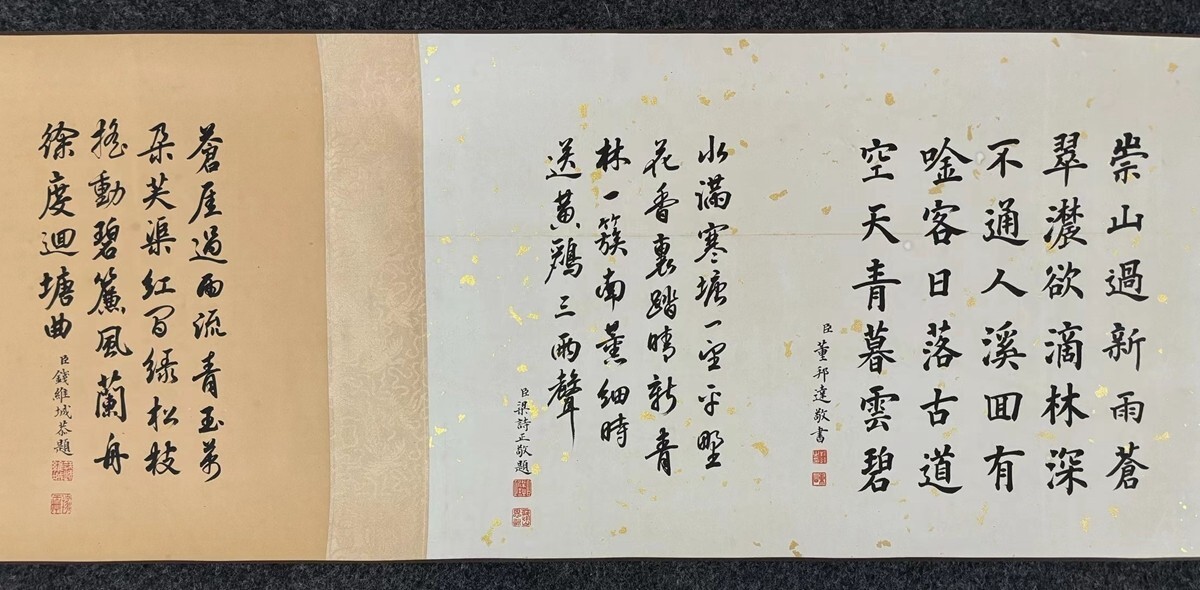 崇山過新雨蒼
翠濃欲滴林深
不通人溪回有
唫客日落古道
空天青暮雲碧
臣董邦達敬書
水滿寒塘一望平野
花香裏踏晴新青
林一簇南薰細時
送黃鸝三兩聲
臣梁詩正敬題
蒼崖過雨流青玉萬
朵芙渠紅間綠松枝
搖動碧簾風蘭舟
徐度迴塘曲
臣錢維城恭題